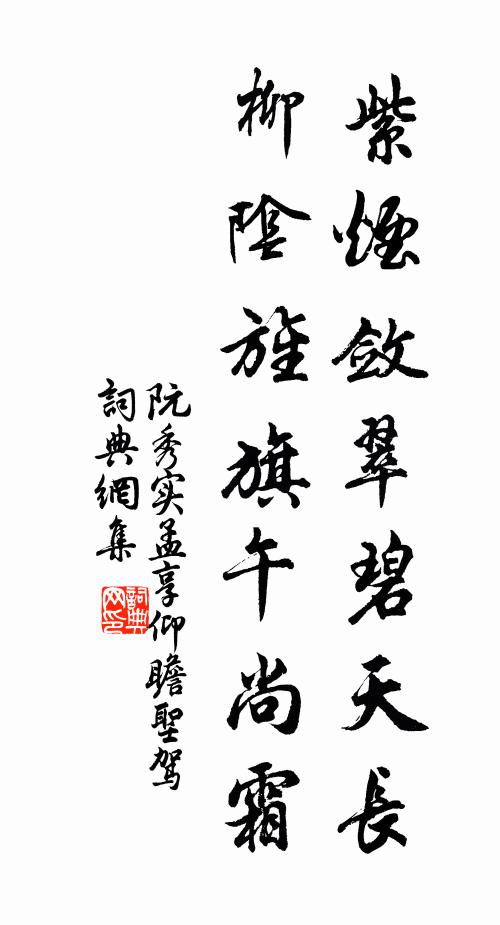 紫煙斂翠碧天長
柳陰旌旗午尚霜
阮秀实孟享仰瞻聖驾
詞典網集
詞典网印